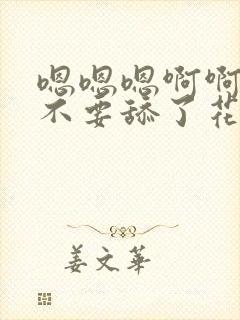 嗯嗯嗯啊啊
不要舔了花
姜文华